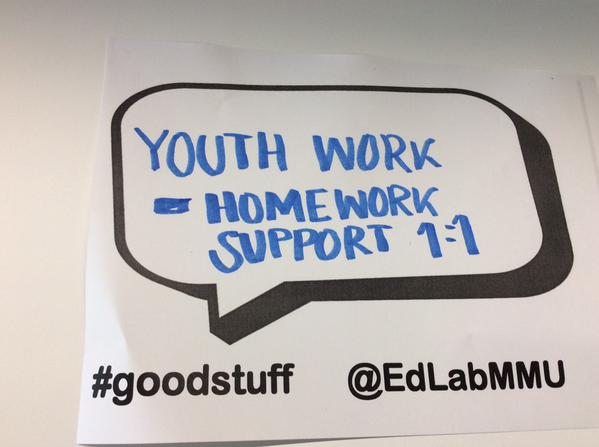 YOUTH WORK
- HOMEWORK
SUPPORT 1:1
#goodstuff @EdLabMMU